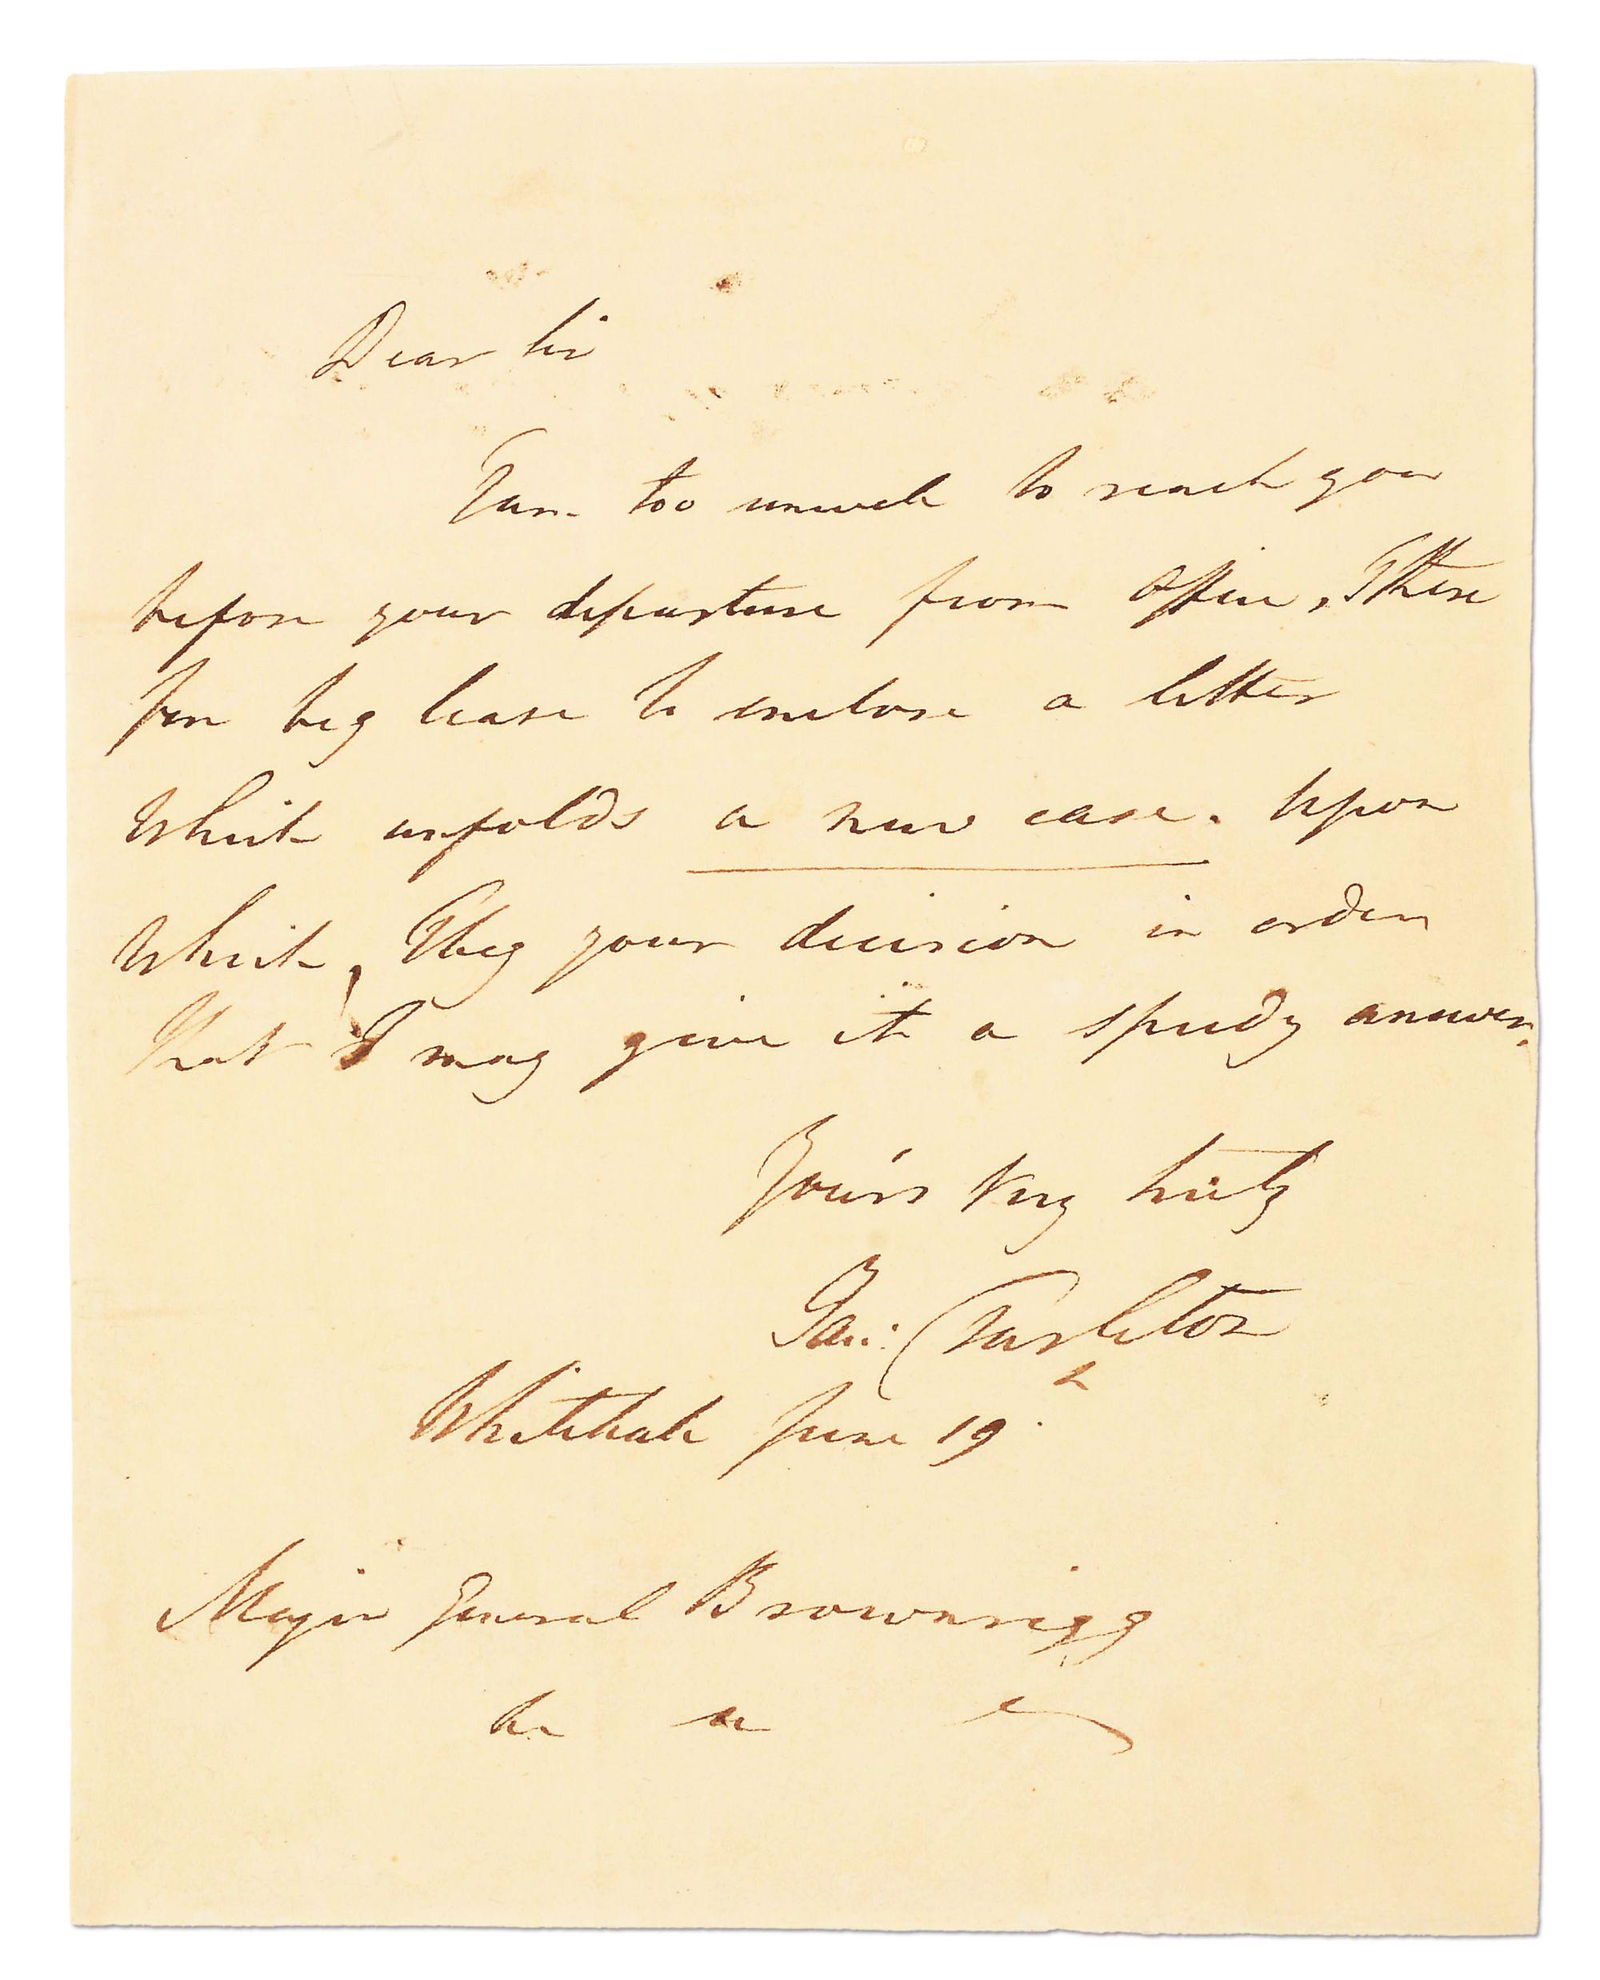 Dear Sir
I am too unwell to reach you
before your departure from Office, I there
fore beg leave to enclose a letter
Which unfolds a new case. Upon
Which, I beg your decision in order
that I may give it a speedy answer.
Your's Very truly
Ban: Tarleton
Whitehall June 19th
Major General Brownrigg
&c &c &c